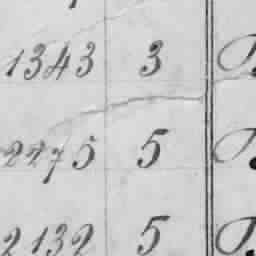 1343 3
2275 5
2132 5